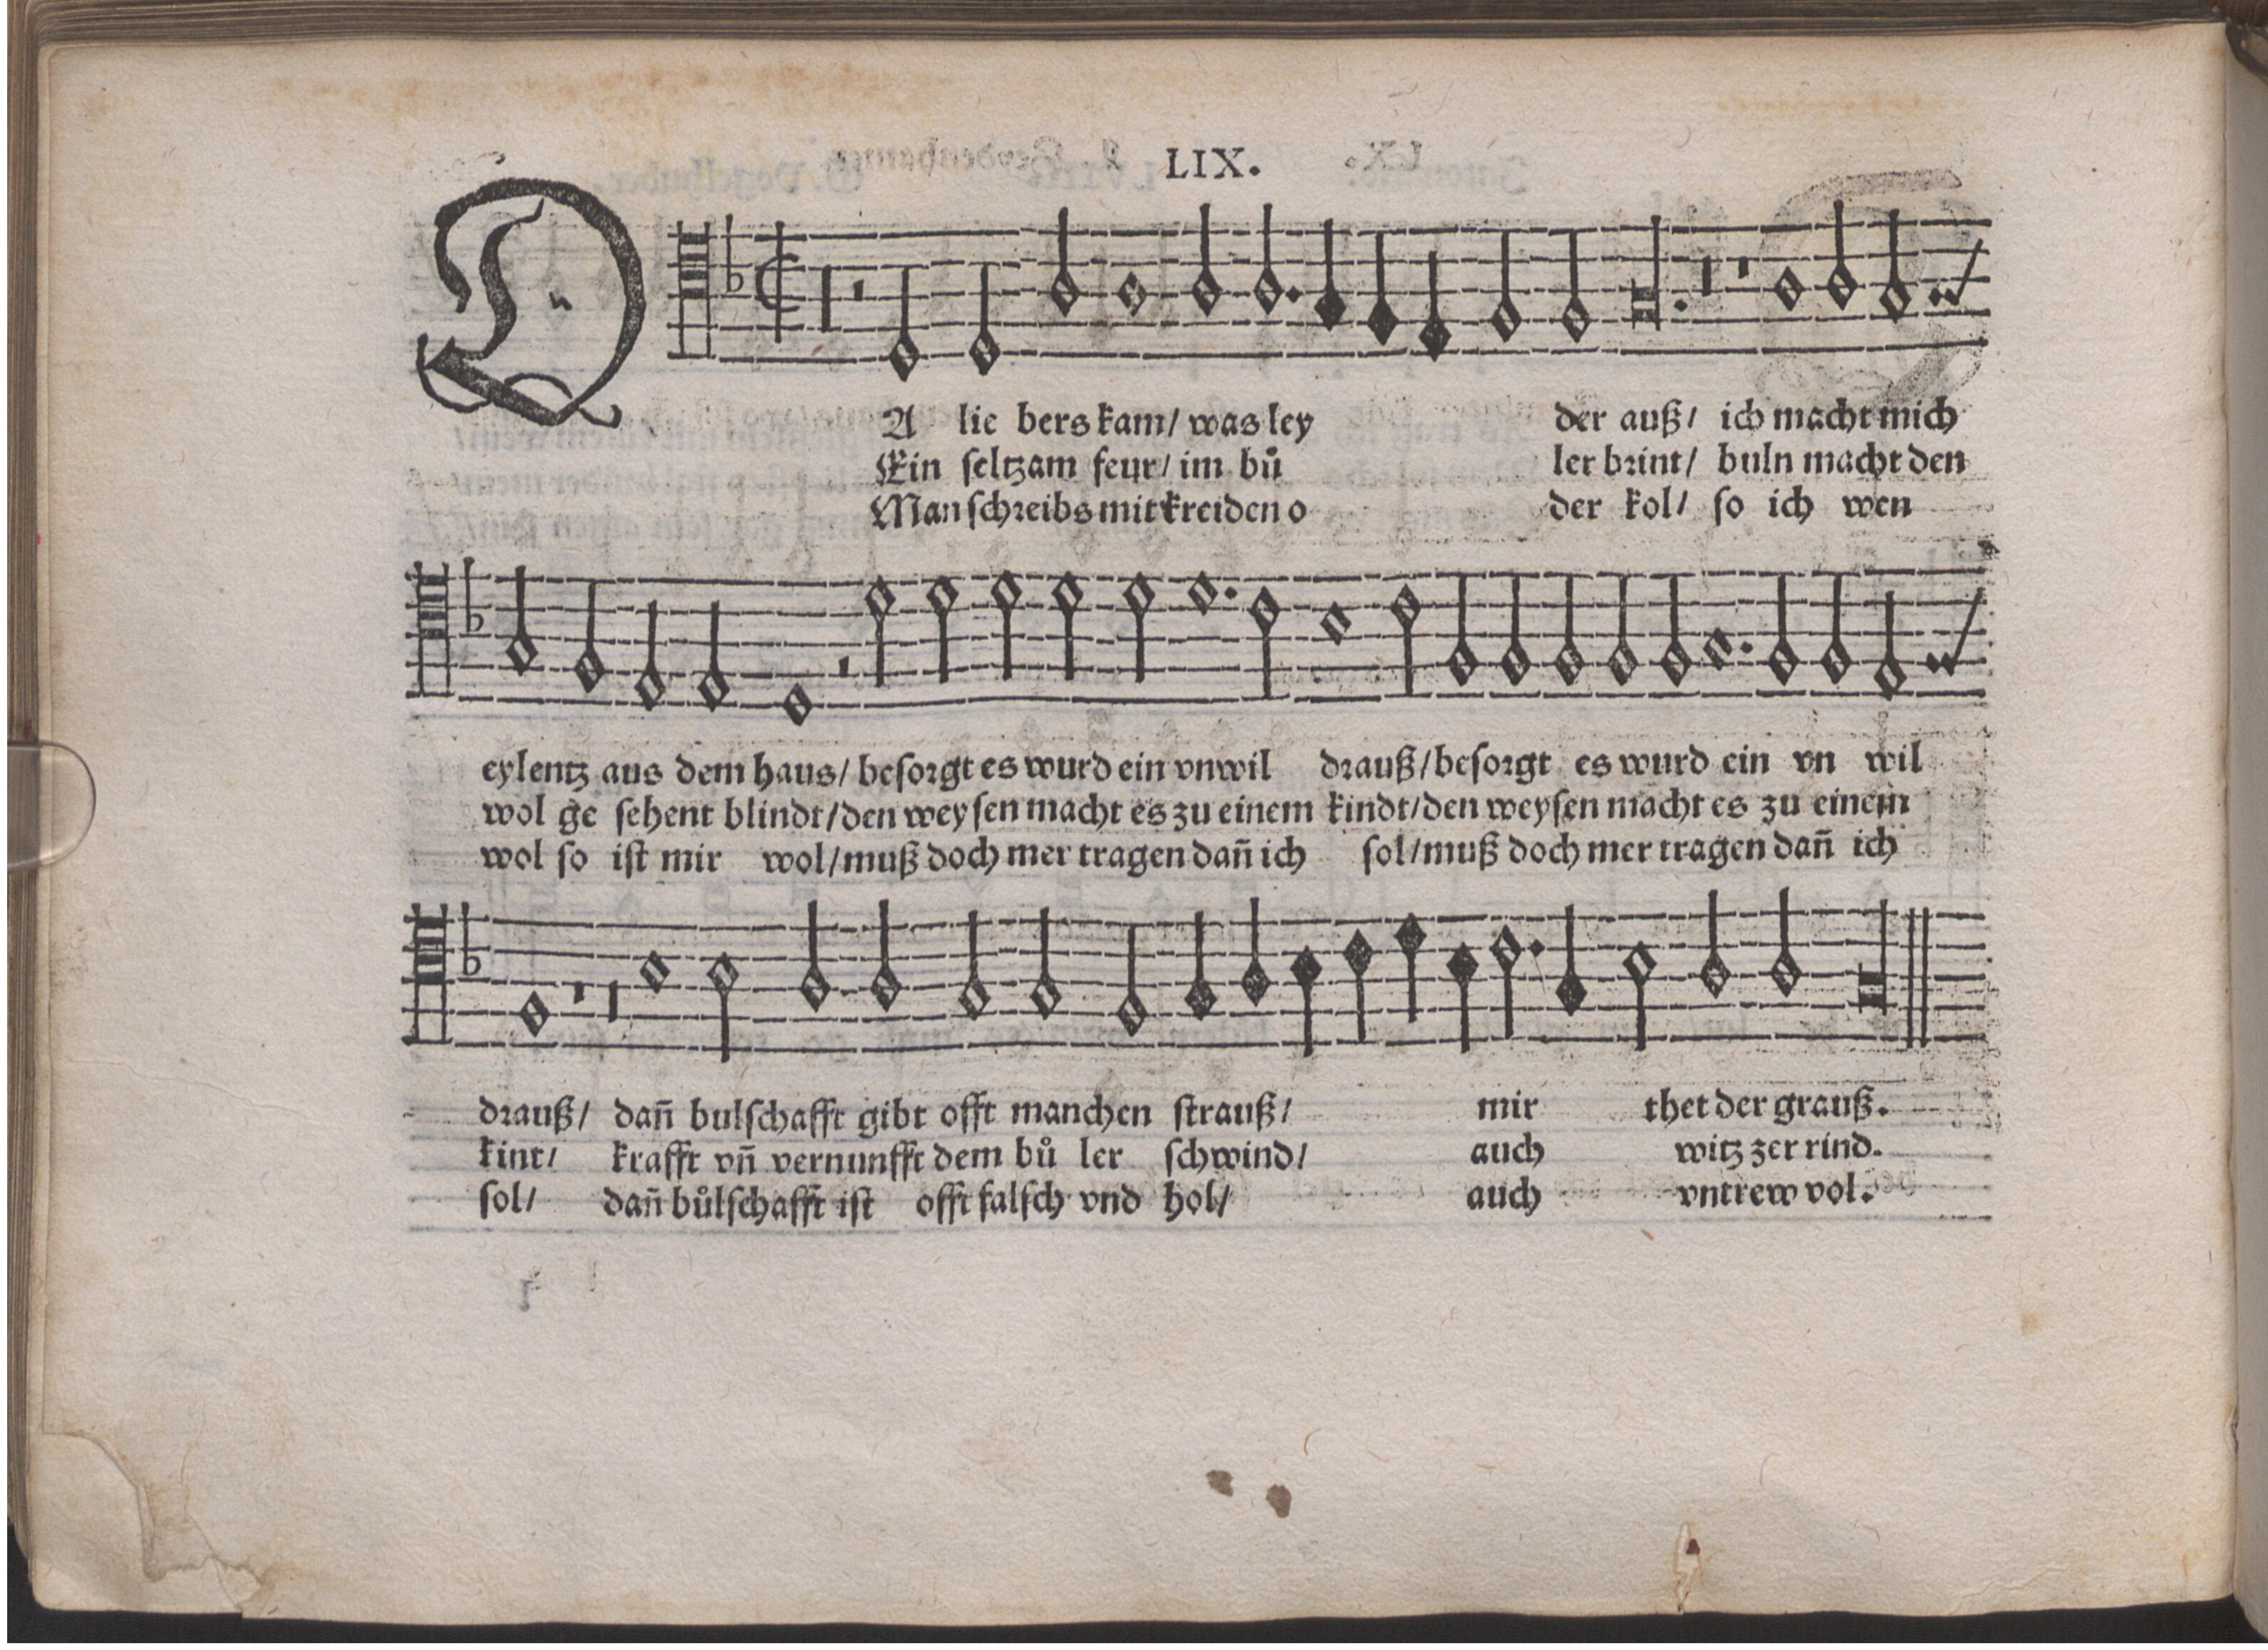 LIX.
DA lie bers kam/ was ley der auß/ ich macht mich
Ein ſeltzam feur/ im bů ler brint/ buln macht den
Man ſchreibs mit kreiden o der kol/ ſo ich wen
eylentz aus dem haus/ beſorgt es wurd ein vnwil drauß/ beſorgt es wurd ein vn wil
wol ge ſehent blindt/ den weyſen macht es zu einem kindt/ den weyſen macht es zu einem
wol ſo iſt mir wol/ muß doch mer tragen dañ ich ſol/ muß doch mer tragen dañ ich
drauß/ dañ bulſchafft gibt offt manchen ſtrauß/ mir thet der grauß.
kint/ krafft vñ vernunfft dem bů ler ſchwind/ auch witz zer rind.
ſol/ dañ bůlſchafft iſt offt falſch vnd hol/ auch vntrew vol.